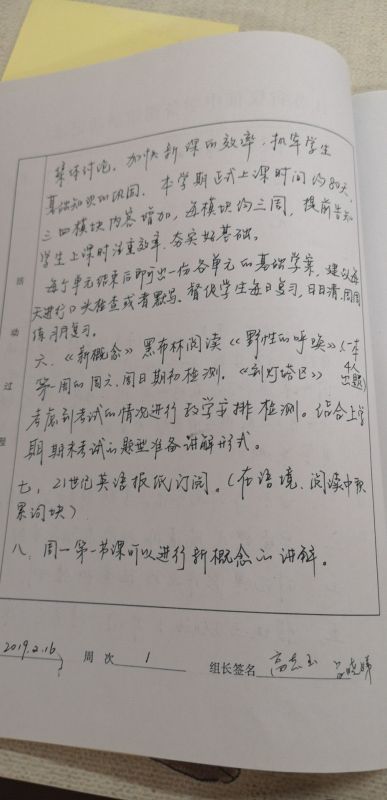 集体讨论，加快新课的效率，抓牢学生
基础知识的巩固。本学期正式上课时间约80天，
三四模块内容增加，每模块约三周，提前告知
学生上课时注重效率，夯实好基础。
每个单元结束后即可出一份各单元的基础学案，建议每
天进行口头检查或者默写。督促学生每日复习，日日清，周周
练，月月复习。
六、《新概念》黑布林阅读《野性的呼唤》（一本
第一周的周六、周日期初检测。 4人
出题）
考虑到考试的情况进行教学安排检测。结合上学
期期末考试的题型准备讲解形式。
七、21世纪英语报纸订阅。（在语境、阅读中积
累词块）
八、周一第一节课可以进行新概念的讲解。
活
动
过
程
2019.2.16 周 次 1 组长签名